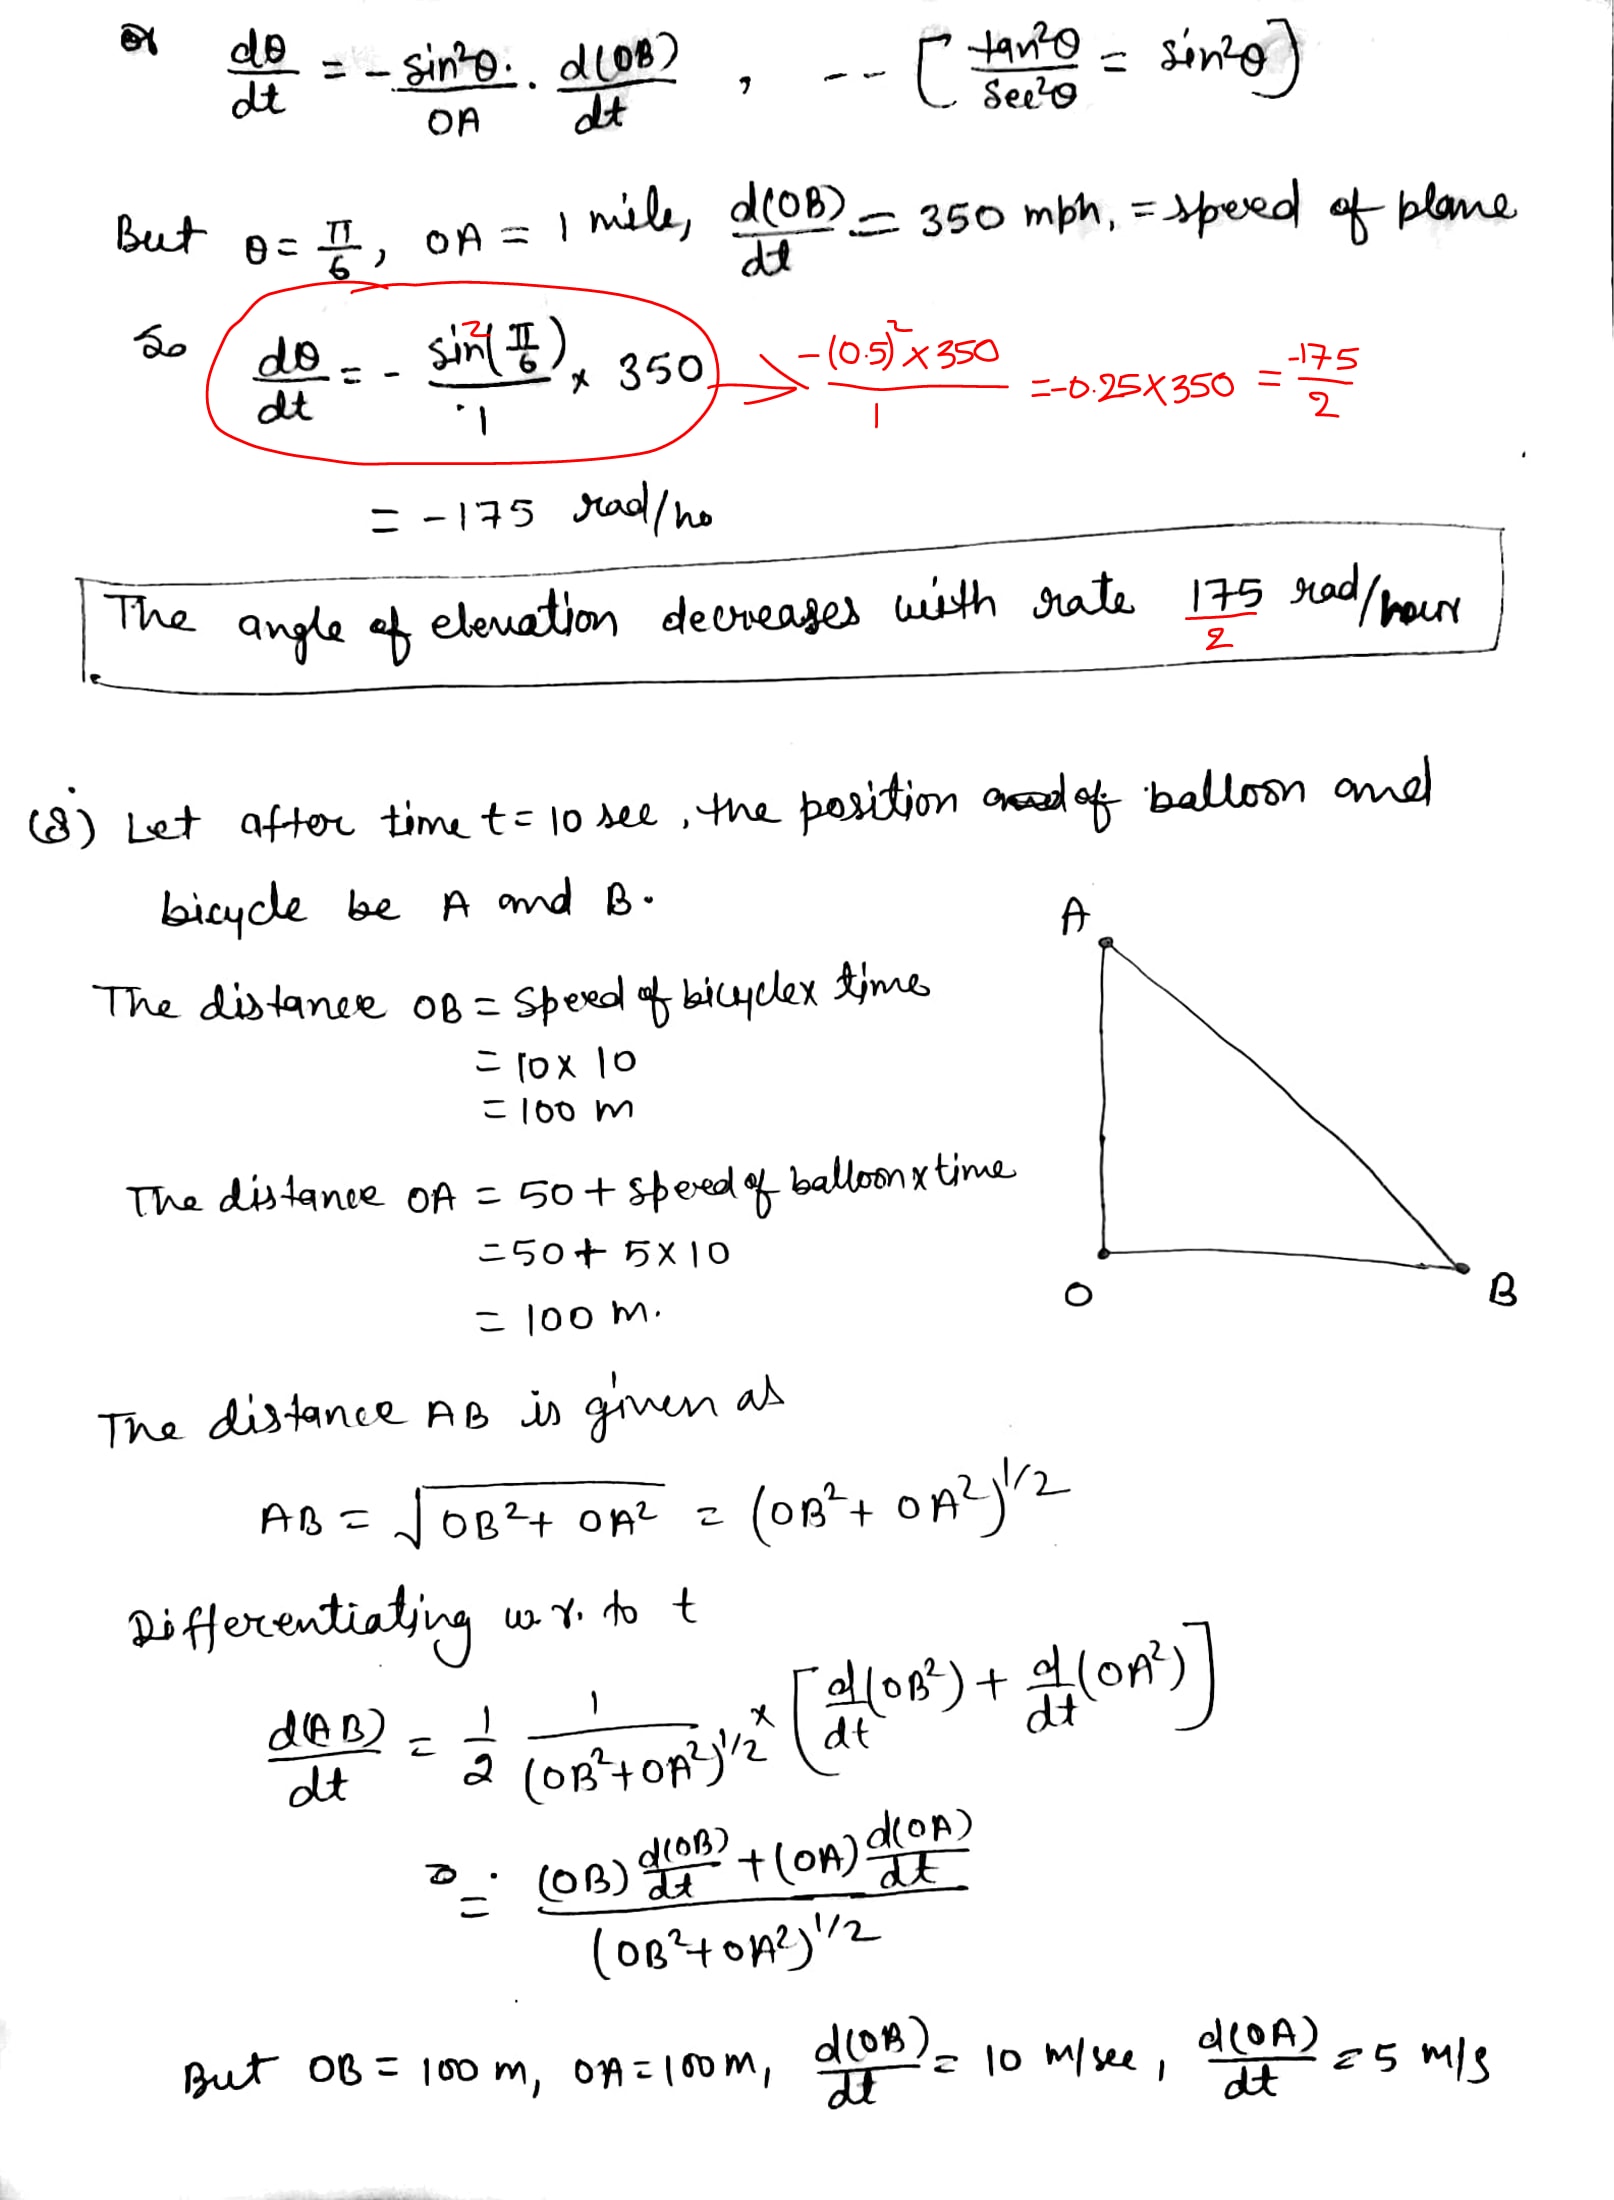 or dθ/dt = - sin²θ/OA · d(OB)/dt , -- [tan²θ/sec²θ = sin²θ]
But θ = π/6, OA = 1 mile, d(OB)/dt = 350 mph, = speed of plane
So dθ/dt = - sin²(π/6)/1 × 350 → -(0.5)² × 350/1 = -0.25 × 350 = -175/2
= -175 rad/hr
The angle of elevation decreases with rate 175/2 rad/hour
(8) Let after time t = 10 sec, the position of balloon and
bicycle be A and B.
A
The distance OB = speed of bicycle x time
= 10 x 10
= 100 m
The distance OA = 50 + speed of balloon x time
= 50 + 5 x 10
O B
= 100 m.
The distance AB is given as
AB = √(OB² + OA²) = (OB² + OA²)^1/2
Differentiating w.r. to t
d(AB)/dt = 1/2 1/(OB² + OA²)^1/2 × [d/dt(OB²) + d/dt(OA²)]
= (OB) d(OB)/dt + (OA) d(OA)/dt / (OB² + OA²)^1/2
But OB = 100 m, OA = 100 m, d(OB)/dt = 10 m/sec, d(OA)/dt = 5 m/s